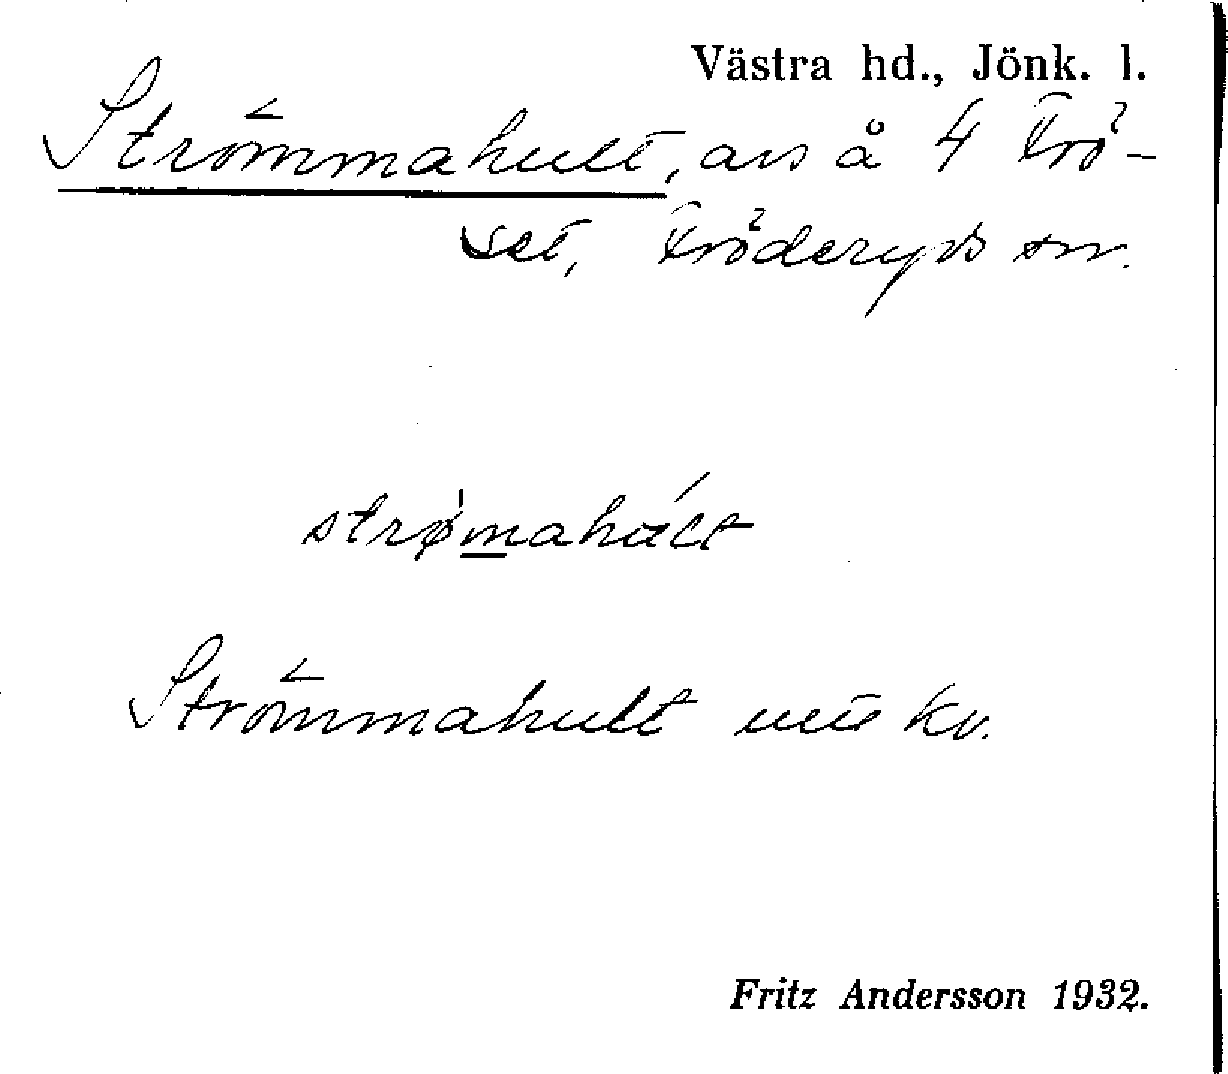 Västra hd., Jönk. l.
Strömmahult, avs å 4 Frö-
set, Fröderyds sn.
strømahúlt
Strömmahult uuie kv.
Fritz Andersson 1932.